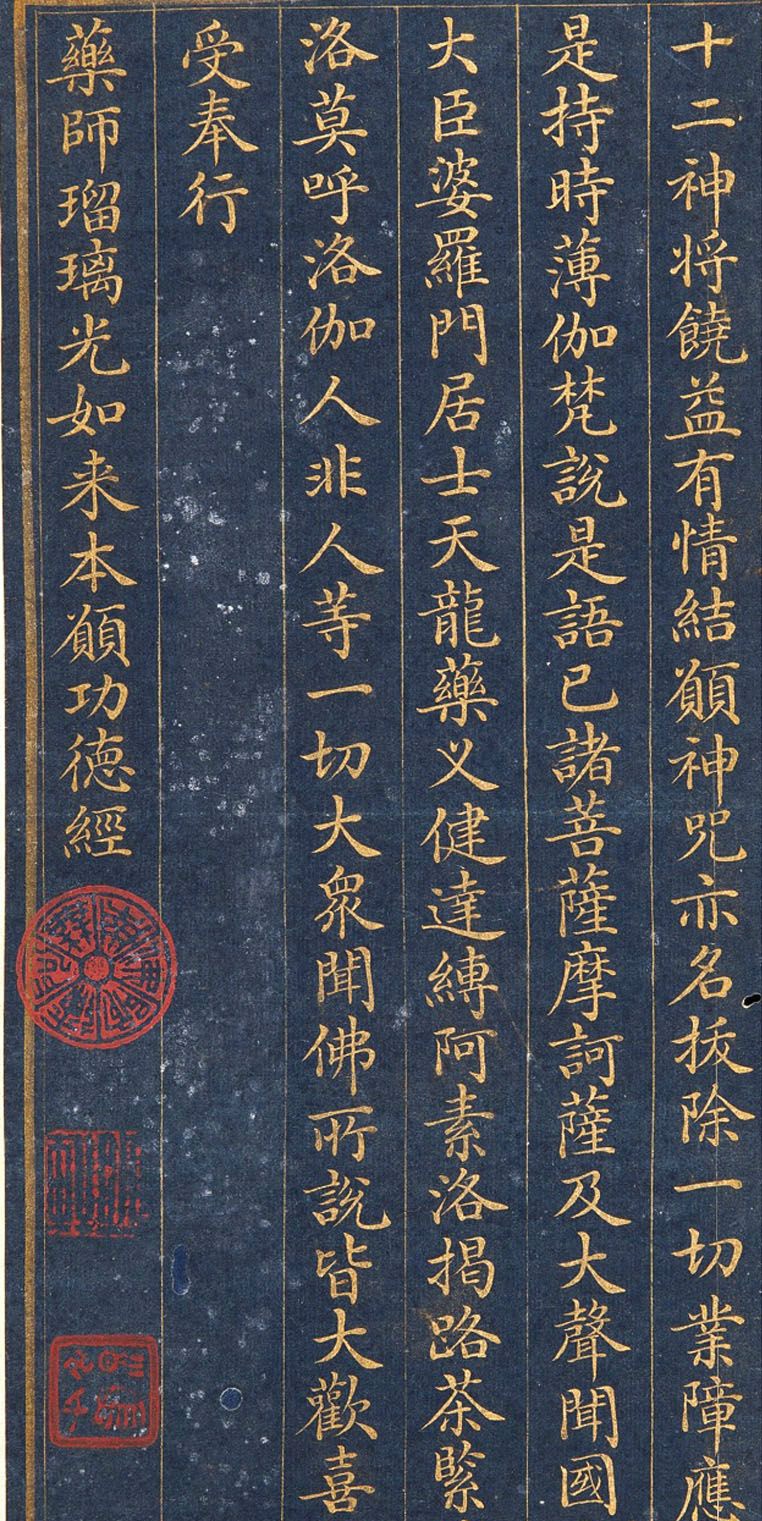 十二神将饒益有情結願神咒亦名拔除一切業障應
是持時薄伽梵說是語已諸菩薩摩訶薩及大聲聞國
大臣婆羅門居士天龍藥义健達縛阿素洛揭路茶緊
洛莫呼洛伽人非人等一切大衆聞佛所說皆大歡喜
受奉行
藥師瑠璃光如来本願功德經